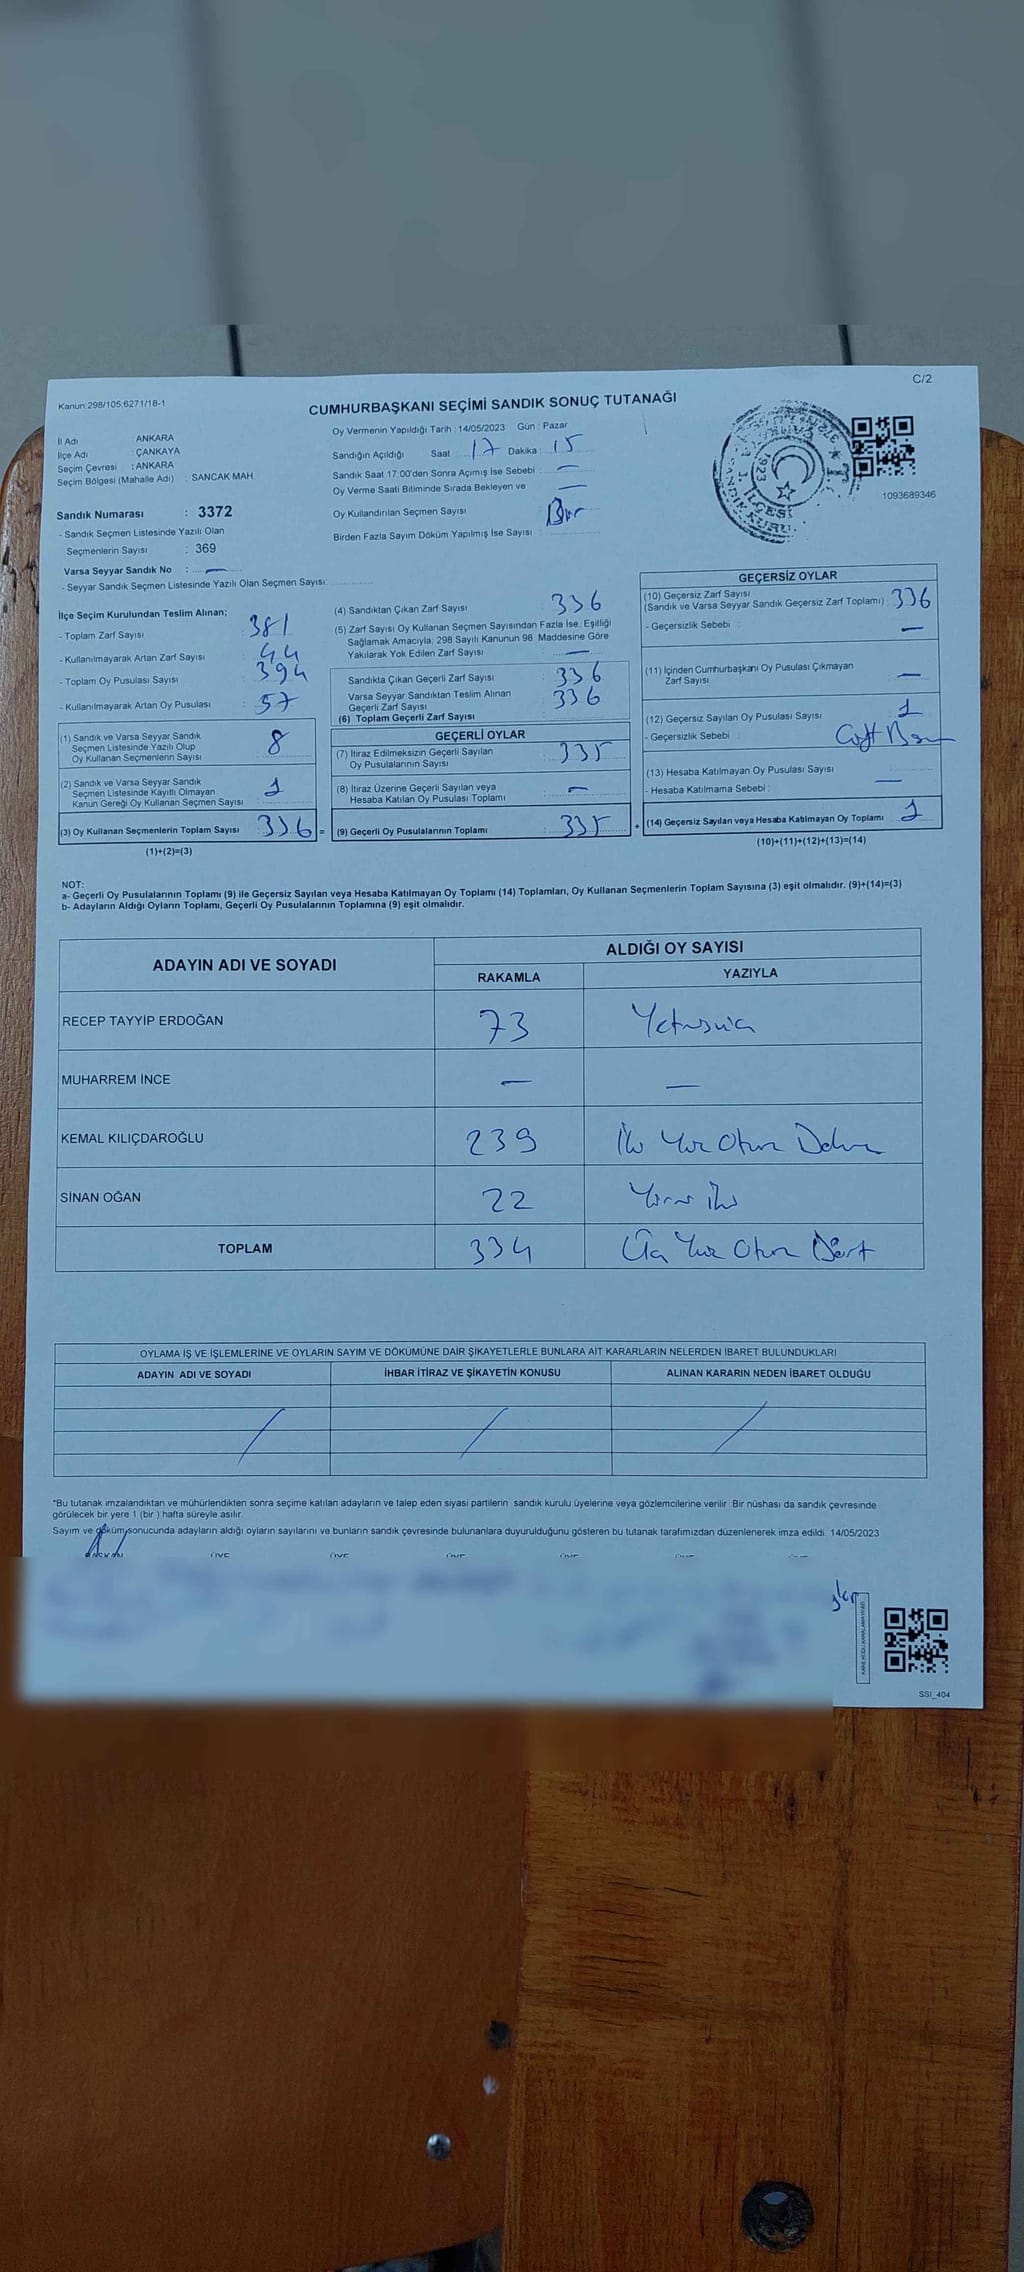 C/2
Kanun:298/105,6271/18-1
CUMHURBAŞKANI SEÇİMİ SANDIK SONUÇ TUTANAĞI
İl Adı : ANKARA
İlçe Adı : ÇANKAYA
Seçim Çevresi : ANKARA
Seçim Bölgesi (Mahalle Adı) : SANCAK MAH.
Sandık Numarası : 3372
- Sandık Seçmen Listesinde Yazılı Olan
Seçmenlerin Sayısı : 369
Varsa Seyyar Sandık No : —
- Seyyar Sandık Seçmen Listesinde Yazılı Olan Seçmen Sayısı:
Oy Vermenin Yapıldığı Tarih : 14/05/2023 Gün : Pazar
Sandığın Açıldığı Saat 17 Dakika : 15
Sandık Saat 17:00'den Sonra Açımış İse Sebebi : —
Oy Verme Saati Bitiminde Sırada Bekleyen ve —
Oy Kullandırılan Seçmen Sayısı
Birden Fazla Sayım Döküm Yapılmış İse Sayısı : Bir
1093689346
İlçe Seçim Kurulundan Teslim Alınan;
- Toplam Zarf Sayısı : 381
- Kullanılmayarak Artan Zarf Sayısı : 44
- Toplam Oy Pusulası Sayısı : 394
- Kullanılmayarak Artan Oy Pusulası : 57
(1) Sandık ve Varsa Seyyar Sandık
Seçmen Listesinde Yazılı Olup
Oy Kullanan Seçmenlerin Sayısı : 8
(2) Sandık ve Varsa Seyyar Sandık
Seçmen Listesinde Kayıtlı Olmayan
Kanun Gereği Oy Kullanan Seçmen Sayısı : 1
(3) Oy Kullanan Seçmenlerin Toplam Sayısı : 336 =
(1)+(2)=(3)
(4) Sandıktan Çıkan Zarf Sayısı : 336
(5) Zarf Sayısı Oy Kullanan Seçmen Sayısından Fazla İse, Eşitliği
Sağlamak Amacıyla; 298 Sayılı Kanunun 98. Maddesine Göre
Yakılarak Yok Edilen Zarf Sayısı : —
Sandıkta Çıkan Geçerli Zarf Sayısı : 336
Varsa Seyyar Sandıktan Teslim Alınan
Geçerli Zarf Sayısı : 336
(6) Toplam Geçerli Zarf Sayısı
GEÇERLİ OYLAR
(7) İtiraz Edilmeksizin Geçerli Sayılan
Oy Pusulalarının Sayısı : 335
(8) İtiraz Üzerine Geçerli Sayılan veya
Hesaba Katılan Oy Pusulası Toplamı : —
(9) Geçerli Oy Pusulalarının Toplamı : 335 +
GEÇERSİZ OYLAR
(10) Geçersiz Zarf Sayısı
(Sandık ve Varsa Seyyar Sandık Geçersiz Zarf Toplamı) : 336
- Geçersizlik Sebebi : —
(11) İçinden Cumhurbaşkanı Oy Pusulası Çıkmayan
Zarf Sayısı : —
(12) Geçersiz Sayılan Oy Pusulası Sayısı : 1
- Geçersizlik Sebebi :
(13) Hesaba Katılmayan Oy Pusulası Sayısı :
- Hesaba Katılmama Sebebi : —
(14) Geçersiz Sayılan veya Hesaba Katılmayan Oy Toplamı : 1
(10)+(11)+(12)+(13)=(14)
NOT:
a- Geçerli Oy Pusulalarının Toplamı (9) ile Geçersiz Sayılan veya Hesaba Katılmayan Oy Toplamı (14) Toplamları, Oy Kullanan Seçmenlerin Toplam Sayısına (3) eşit olmalıdır. (9)+(14)=(3)
b- Adayların Aldığı Oyların Toplamı, Geçerli Oy Pusulalarının Toplamına (9) eşit olmalıdır.
ADAYIN ADI VE SOYADI
ALDIĞI OY SAYISI
RAKAMLA YAZIYLA
RECEP TAYYİP ERDOĞAN 73
MUHARREM İNCE — —
KEMAL KILIÇDAROĞLU 239 İki Yüz Otuz Dokuz
SİNAN OĞAN 22 Yirmi İki
TOPLAM 334 Üç Yüz Otuz Dört
OYLAMA İŞ VE İŞLEMLERİNE VE OYLARIN SAYIM VE DÖKÜMÜNE DAİR ŞİKAYETLERLE BUNLARA AİT KARARLARIN NELERDEN İBARET BULUNDUKLARI
ADAYIN ADI VE SOYADI İHBAR İTİRAZ VE ŞİKAYETİN KONUSU ALINAN KARARIN NEDEN İBARET OLDUĞU
*Bu tutanak imzalandıktan ve mühürlendikten sonra seçime katılan adayların ve talep eden siyasi partilerin sandık kurulu üyelerine veya gözlemcilerine verilir. Bir nüshası da sandık çevresinde
görülecek bir yere 1 (bir) hafta süreyle asılır.
Sayım ve döküm sonucunda adayların aldığı oyların sayılarını ve bunların sandık çevresinde bulunanlara duyurulduğunu gösteren bu tutanak tarafımızdan düzenlenerek imza edildi. 14/05/2023
BAŞKAN ÜYE ÜYE ÜYE ÜYE ÜYE ÜYE
SSI_404